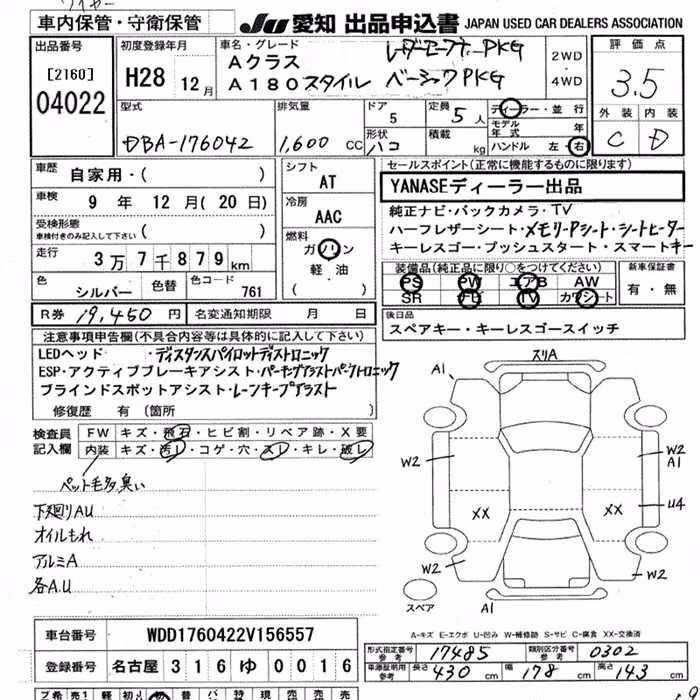 車内保管・守衛保管 JU 愛知 出品申込書 JAPAN USED CAR DEALERS ASSOCIATION
出品番号 [2160] 04022
初度登録年月 H28 12月
車名・グレード
Aクラス
A180スタイル ベーシックPKG
2WD ・ 4WD
評価点 3.5
外装 内装
C D
型式 DBA-176042
排気量 1,600 CC
ドア 5
形状 ハコ
定員 5人
積載 kg
ディーラー・並行
モデル年式 年
ハンドル 左・右
車歴 自家用・( )
車検 9年 12月(20日)
受検形態 ( )
車検付きのみ記入して下さい
走行 3万7千879km
色 シルバー 色替 色コード 761
シフト AT
冷房 AAC
燃料 ガソリン
軽油
( )
セールスポイント(正常に機能するものに限ります)
YANASEディーラー出品
純正ナビ・バックカメラ・TV
ハーフレザーシート・メモリーPシート・シートヒーター
キーレスゴー・プッシュスタート・スマートキー
装備品(純正品に限り○をつけてください)
PS PW エアB AW
SR ナビ TV カワシート
新車保証書 有・無
R券 19,450円 名変通知期限 月 日
後日品
スペアキー・キーレスゴースイッチ
注意事項申告欄(不具合内容等は具体的に記入して下さい)
LEDヘッド ・ディスタンスパイロットディストロニック
ESP・アクティブブレーキアシスト・パーキングアシストパークトロニック
ブラインドスポットアシスト・レーンキープアシスト
修復歴 有(箇所 )
検査員記入欄
FW キズ・飛石・ヒビ割・リペア跡・X要
内装 キズ・汚レ・コゲ・穴・スレ・キレ・破レ
ペット毛多臭い
下廻りAU
オイルもれ
アルミA
各A.U
スリA
A1
W2 W2
A1
XX XX U4
W2 W2
スペア A1
A-キズ E-エクボ U-凹み W-補修跡 S-サビ C-腐食 XX-交換済
車台番号 WDD1760422V156557
登録番号 名古屋 316 ゆ 0016
形式指定番号 参考 17485 類別区分番号 参考 0302
車庫証明用 参考 長さ 430 cm 幅 178 cm 高さ 143 cm